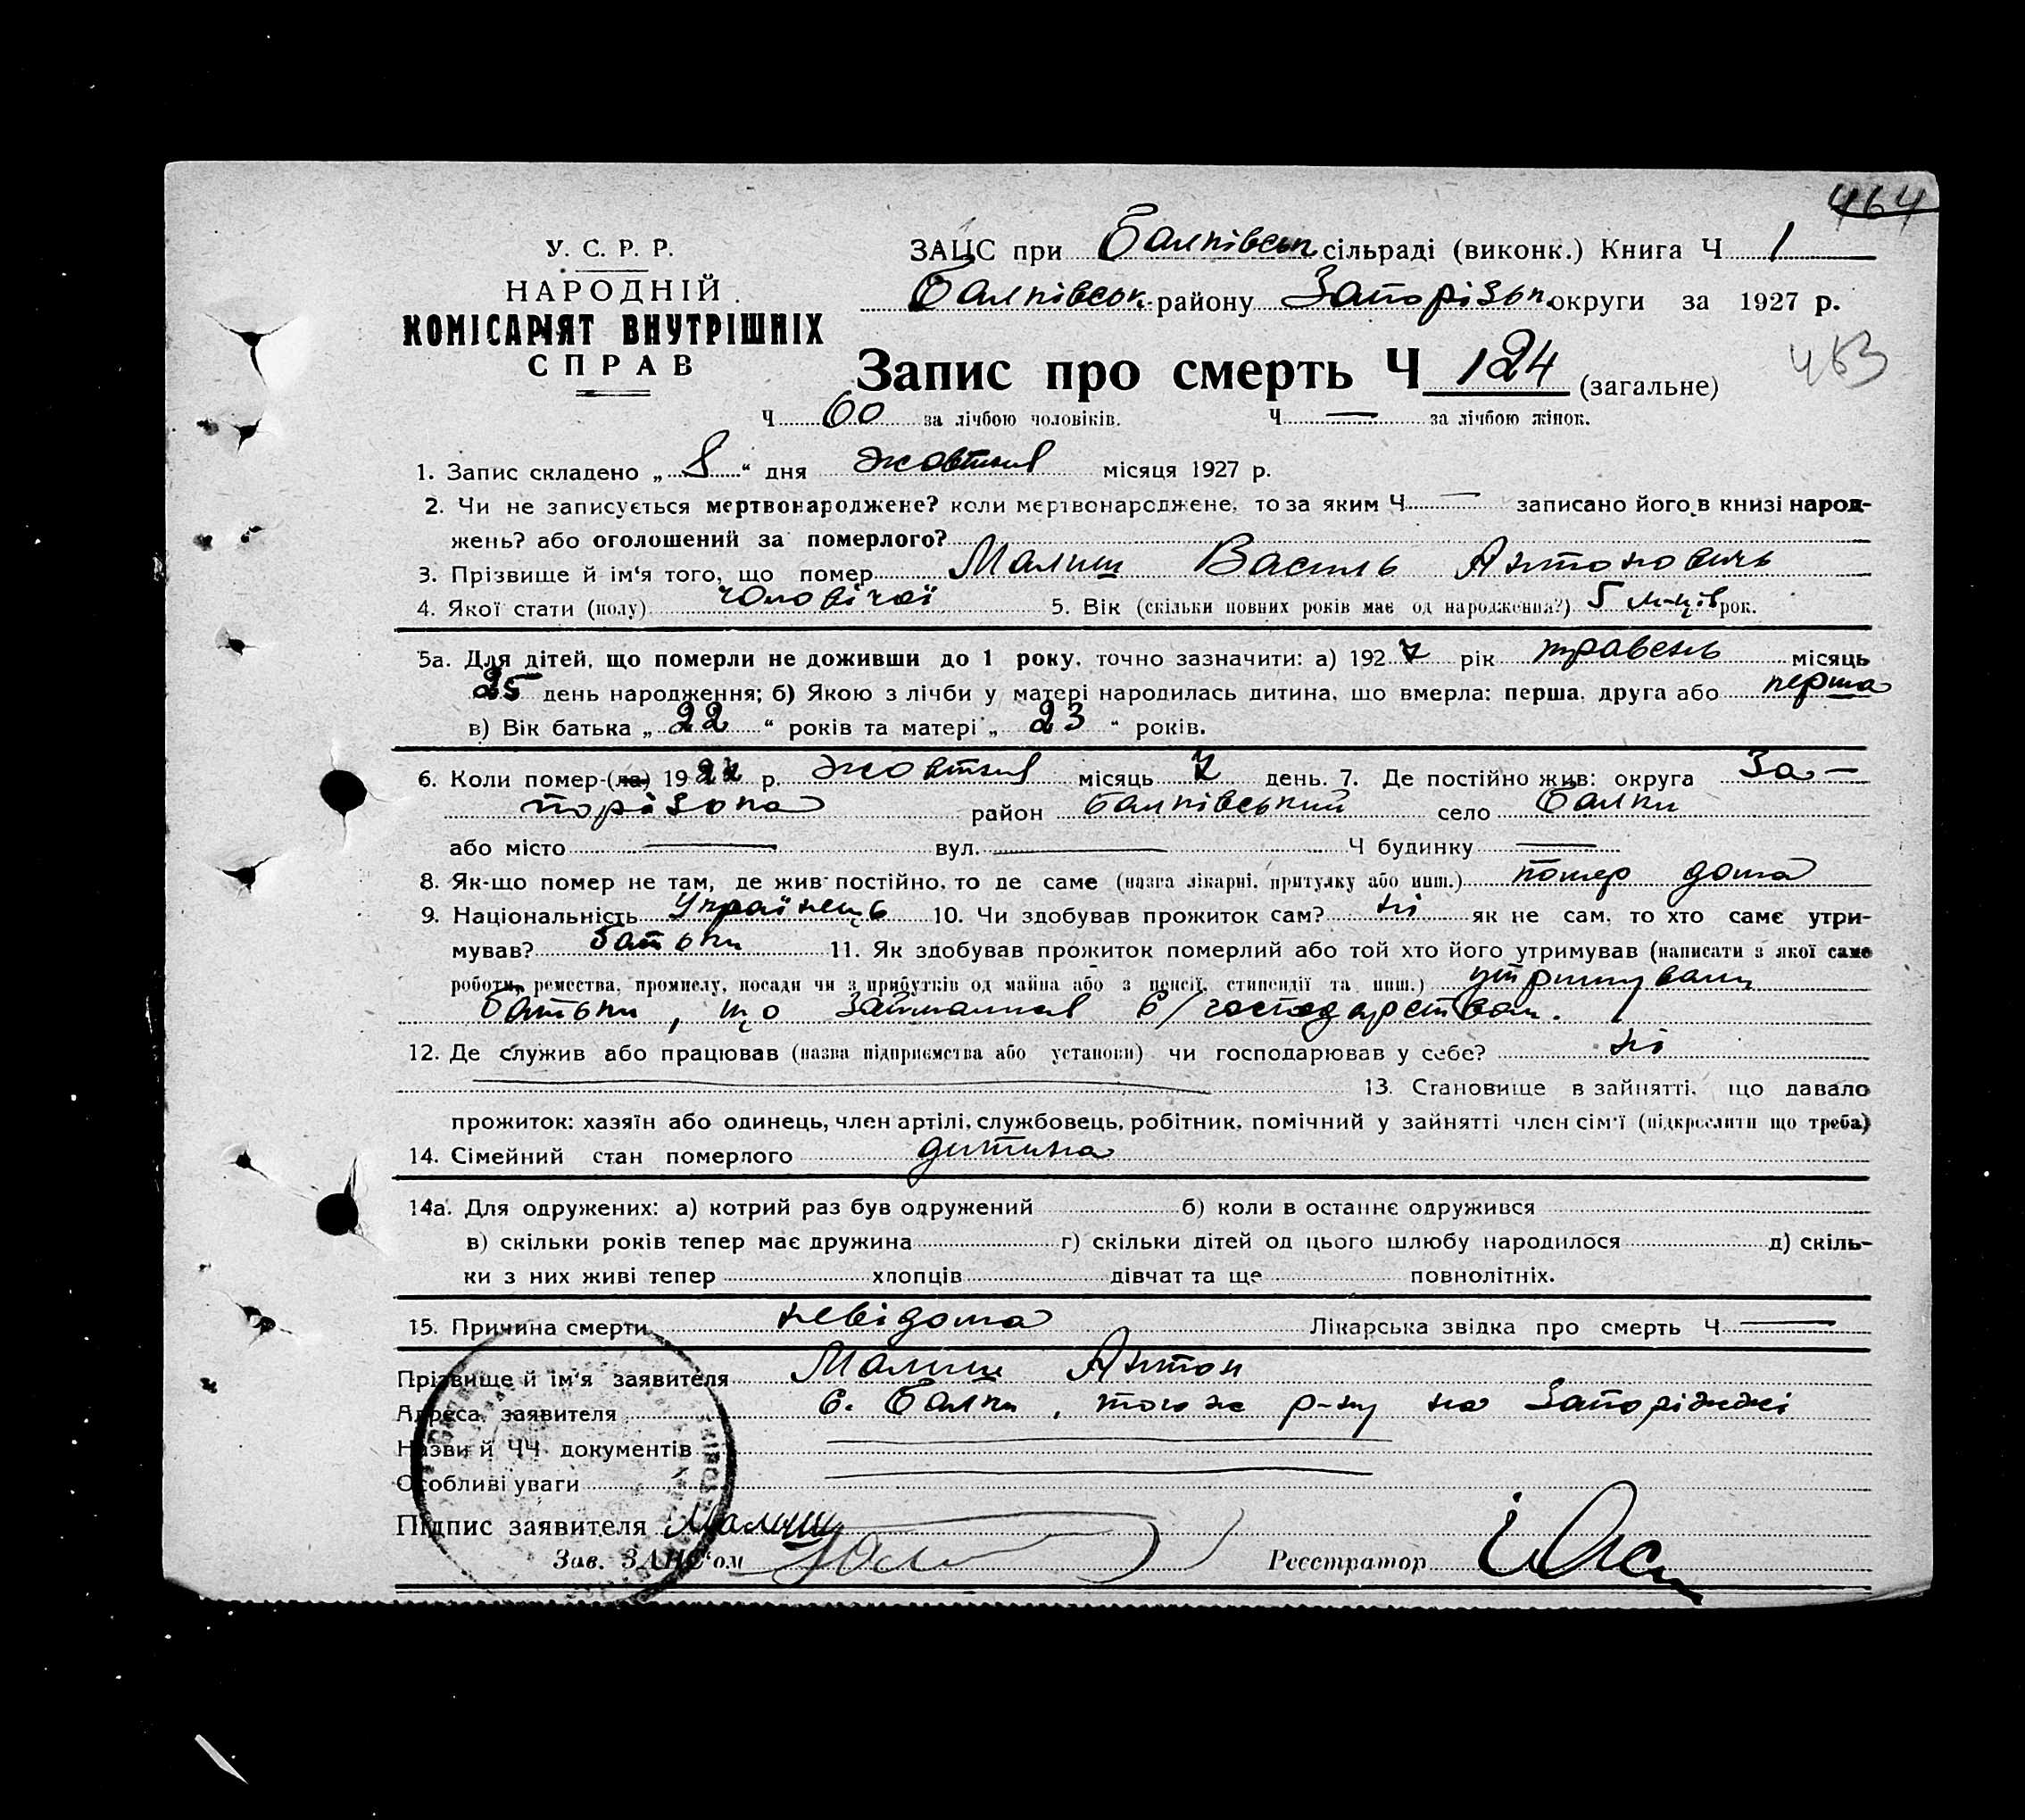 464
У. С. Р. Р.
НАРОДНІЙ
КОМІСАРІЯТ ВНУТРІШНІХ
СПРАВ
ЗАЦС при Балківськ сільраді (виконк.) Книга Ч 1
Балківськ. району Запорізьк. округи за 1927 р.
Запис про смерть Ч 124 (загальне)
463
Ч 60 за лічбою чоловіків. Ч — за лічбою жінок.
1. Запис складено „ 8 “ дня жовтня місяця 1927 р.
2. Чи не записується мертвонароджене? коли мертвонароджене, то за яким Ч — записано його в книзі народ-
жень? або оголошений за померлого?
3. Прізвище й ім‘я того, що помер Малиш Василь Антоновичь
4. Якої стати (полу) чоловічої 5. Вік (скільки повних років має од народження?) 5 м-ців рок.
5а. Для дітей, що померли не доживши до 1 року, точно зазначити: а) 1927 рік травень місяць
25 день народження; б) Якою з лічби у матері народилась дитина, що вмерла: перша, друга або перша
в) Вік батька „ 22 “ років та матері „ 23 “ років.
6. Коли помер-(ла) 1927 р. жовтня місяць 7 день. 7. Де постійно жив: округа За-
порізька район Балківський село Балки
або місто — вул. — Ч будинку —
8. Як-що помер не там, де жив постійно, то де саме (назва лікарні, притулку або инш.) помер дома
9. Національність Українець 10. Чи здобував прожиток сам? ні як не сам, то хто саме утри-
мував? батьки 11. Як здобував прожиток померлий або той хто його утримував (написати з якої саме
роботи, ремества, промислу, посади чи з прибутків од майна або з пенсії, стипендії та инш.) утримували
батьки, що займалися с/господарством.
12. Де служив або працював (назва підприємства або установи) чи господарював у себе? ні
— 13. Становище в зайнятті, що давало
прожиток: хазяїн або одинець, член артілі, службовець, робітник, помічний у зайнятті член сім‘ї (підкреслити що треба)
14. Сімейний стан померлого дитина
14а. Для одружених: а) котрий раз був одружений б) коли в останнє одружився
в) скільки років тепер має дружина г) скільки дітей од цього шлюбу народилося д) скіль-
ки з них живі тепер хлопців дівчат та ще повнолітніх.
15. Причина смерти невідома Лікарська звідка про смерть Ч —
Прізвище й ім‘я заявителя Малиш Антон
Адреса заявителя с. Балки, того ж р-ну на Запоріжжі
Назви й ЧЧ документів —
Особливі уваги —
Підпис заявителя Малиш
Зав. ЗАЦС‘ом Реєстратор